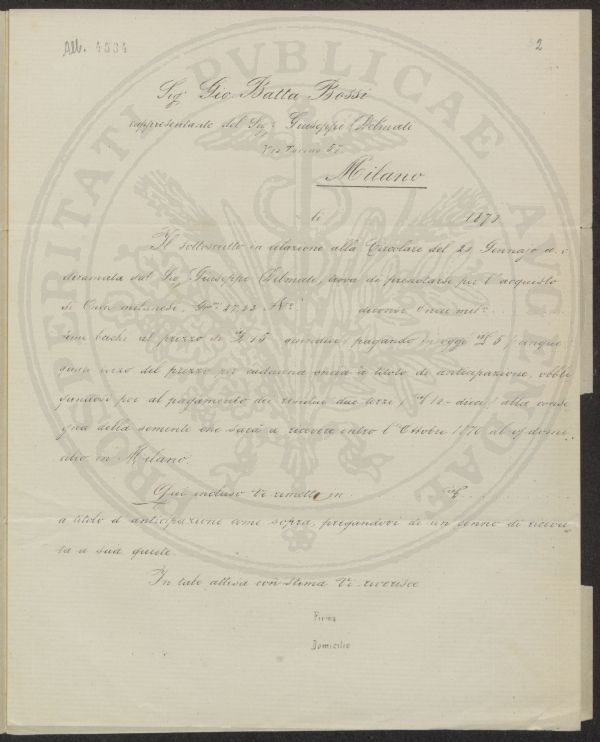 Alb. 4534
2
Sig.r Gio. Batta Bossi
rappresentante del Sig.r Giuseppe Delmati
Via Torino 57.
Milano
li 187
Il sottoscritto in relazione alla Circolare del 20 Gennajo a. c.
diramata dal Sig. Giuseppe Delmati, trova di prenotarsi per l'acquisto
di Oncie milanesi, N.°
seme bachi al prezzo di £ 15 quindici / pagando in oggi £ 5 / cinque
quia terzo del prezzo per cadauna oncia a titolo di anticipazione, obbli
gandosi poi al pagamento dei residui due terzi / £ 10 - dieci / alla conse
gna della semente che sarà a ricevere entro l'Ottobre 1870 al domi
cilio in Milano.
Qui incluso Vi rimetto in
a titolo d'anticipazione come sopra, pregandovi di un cenno di ricevu
ta a sua quiete
In tale attesa con stima Vi riverisco
Firma
Domicilio
PERITATI PVBLICAE AVGENDAE